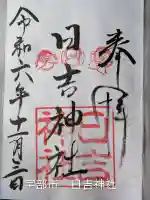 奉拝
日吉神社
日吉神社
令和六年十一月三日
宇部市 日吉神社